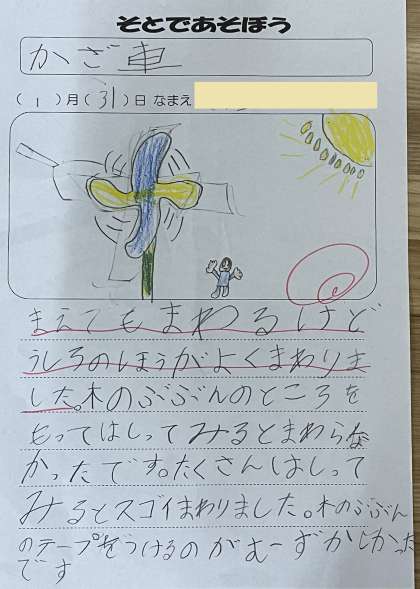 そとであそぼう
かざ車
(1)月(31)日 なまえ
まえでもまわるけど
うしろのほうがよくまわりま
した。木のぶぶんのところを
もってはしってみるとまわらな
かったです。たくさんはしって
みるとスゴイまわりました。木のぶぶん
のテープをつけるのがむーずかしかった
です